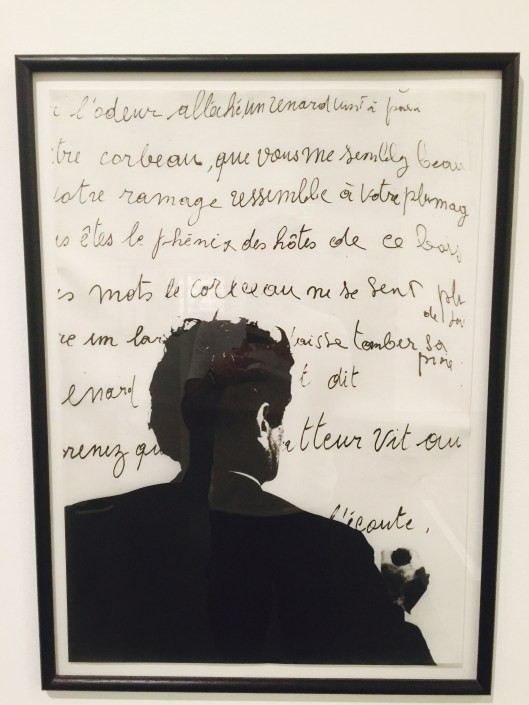 l'odeur alléché, un renard vint à
tre corbeau, que vous me semblez beau
votre ramage ressemble à votre plumag
us êtes le phénix des hôtes de ce bois
s mots le corbeau ne se sent plu
de joi
re un lar laisse tomber sa
proie
enard t dit
renez qu atteur vit au
l'écoute,